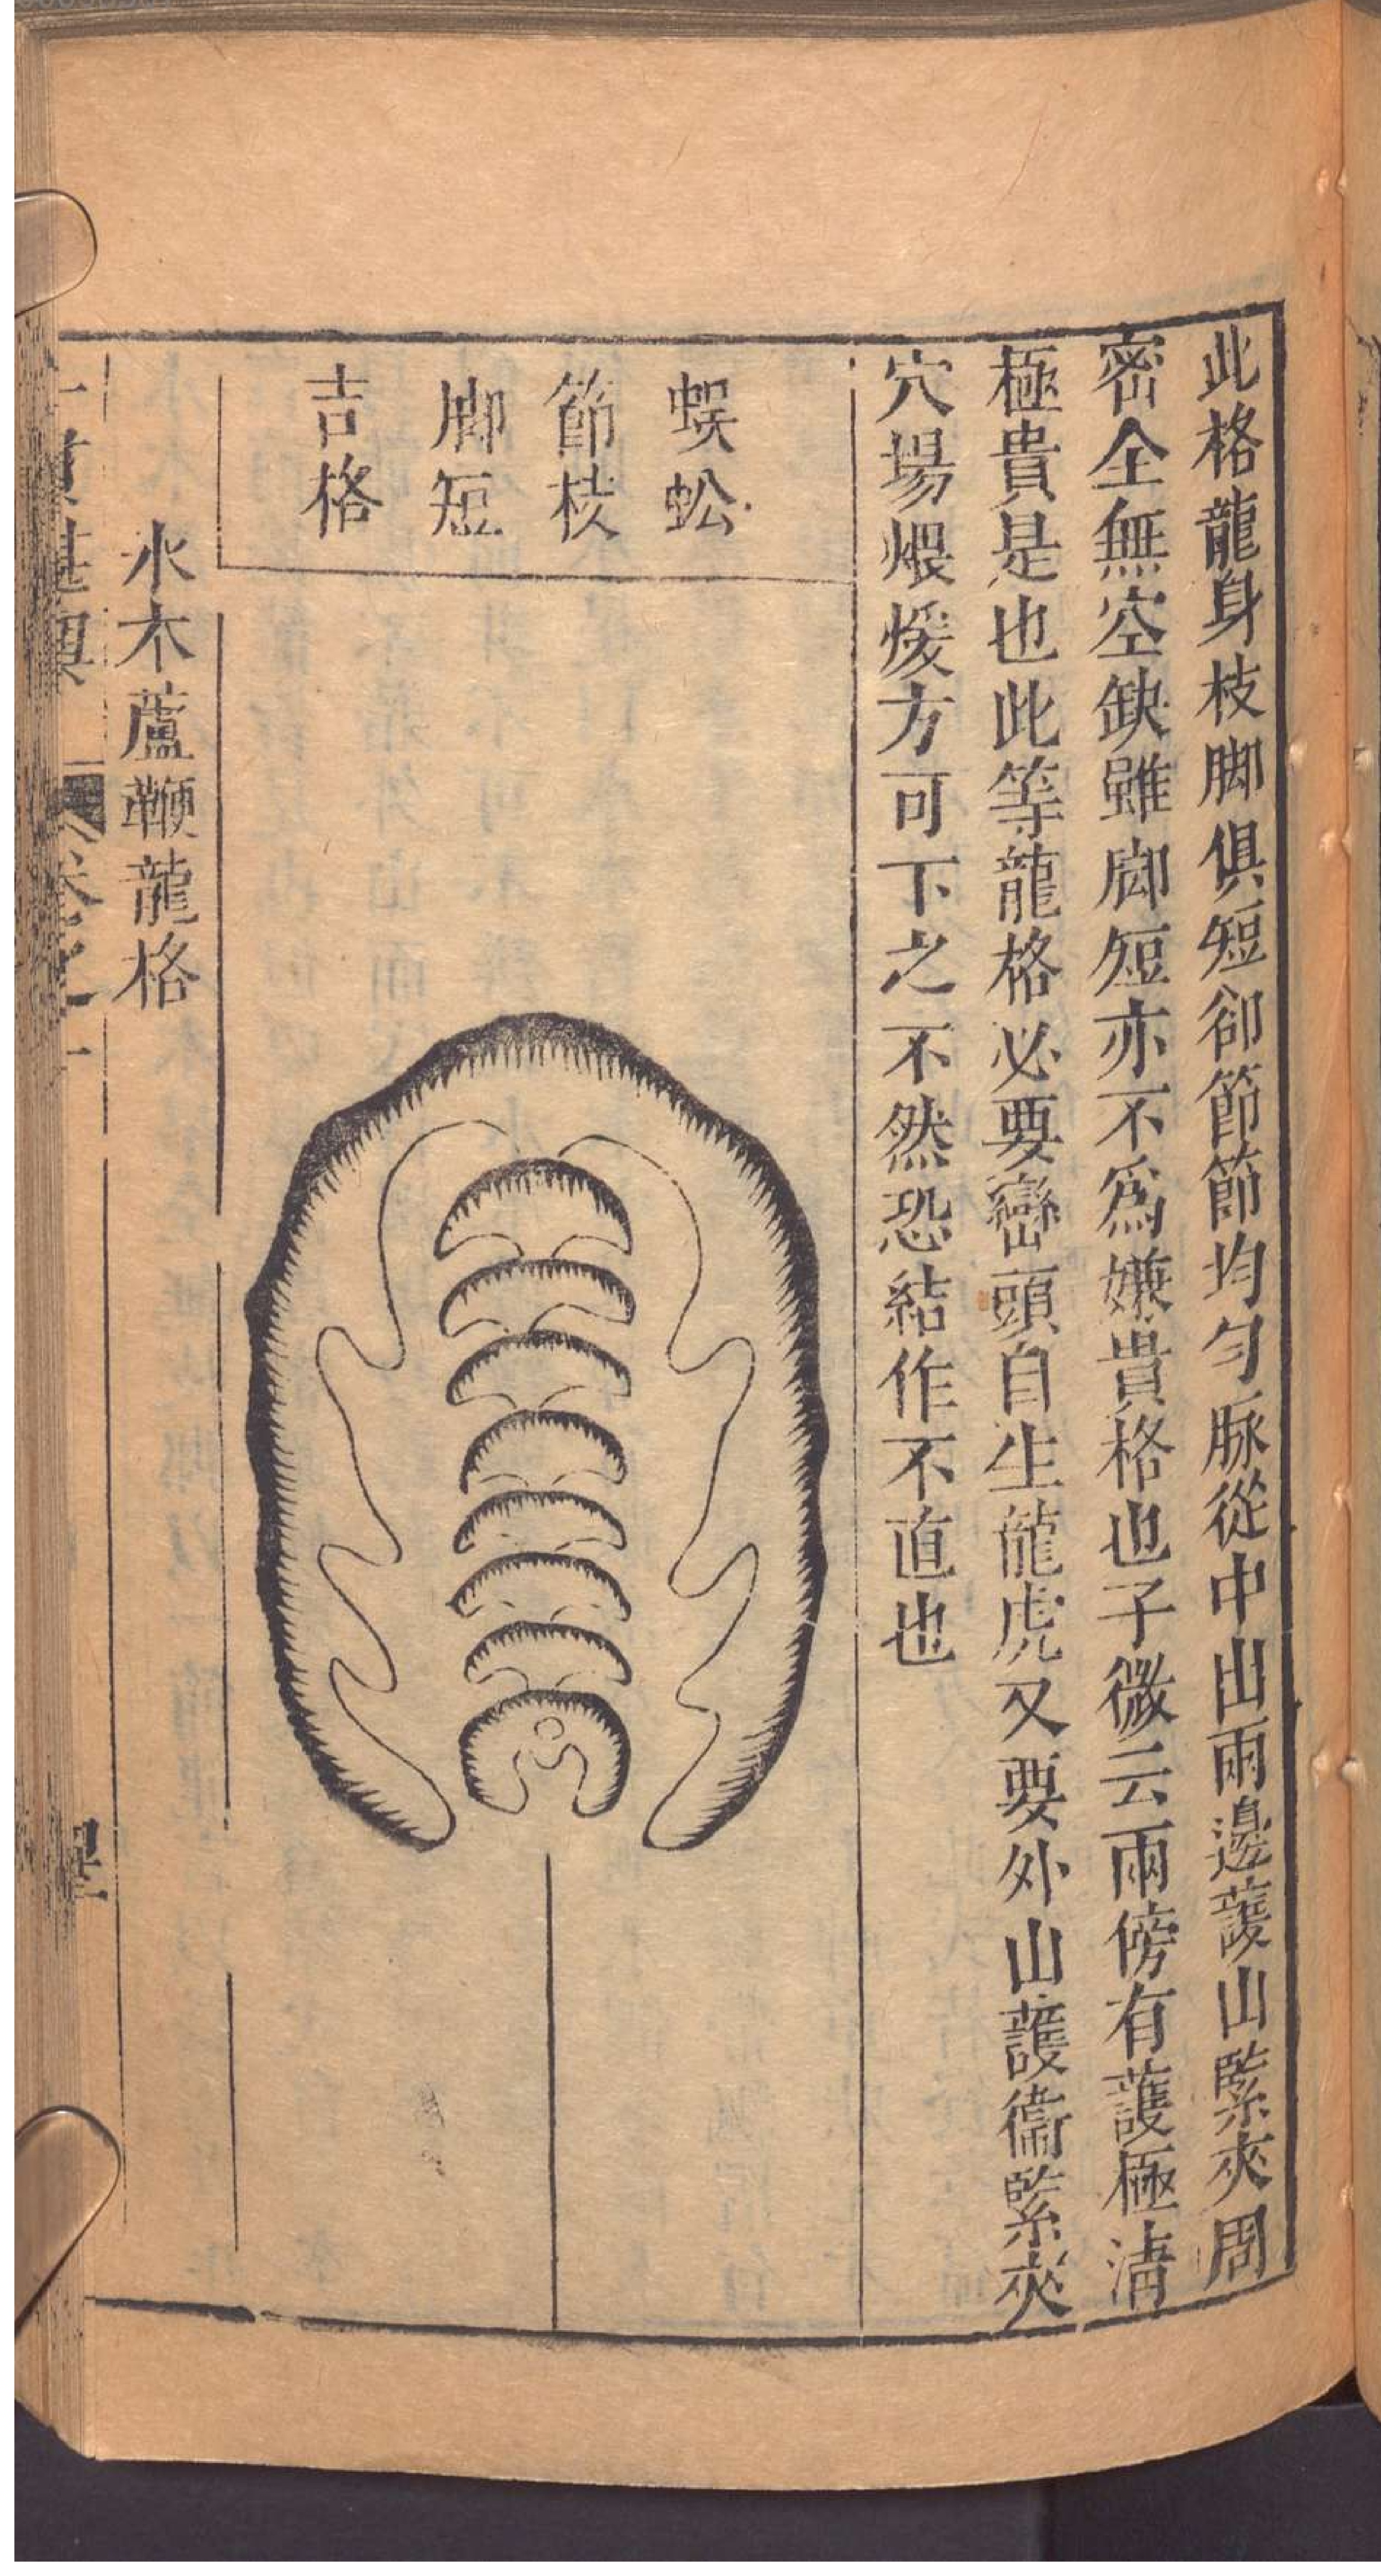 此格龍身枝脚俱短卻節節均勻脉從中出兩邊護山緊夾周
密全無空缺雖脚短亦不爲嫌貴格也子微云兩傍有護極清
極貴是也此等龍格必要巒頭自生龍虎又要外山護衞緊夾
穴塲煨煖方可下之不然恐結作不直也
蜈蚣
節枝
脚短
吉格
水木蘆鞭龍格
卷之一